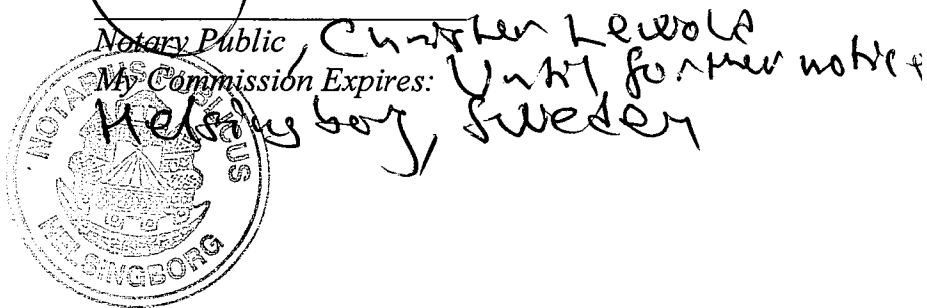 Notary Public, Christer Lewold
My Commission Expires: Until further notice
Helsingborg, Sweden
NOTARIUS PUBLICUS
HELSINGBORG